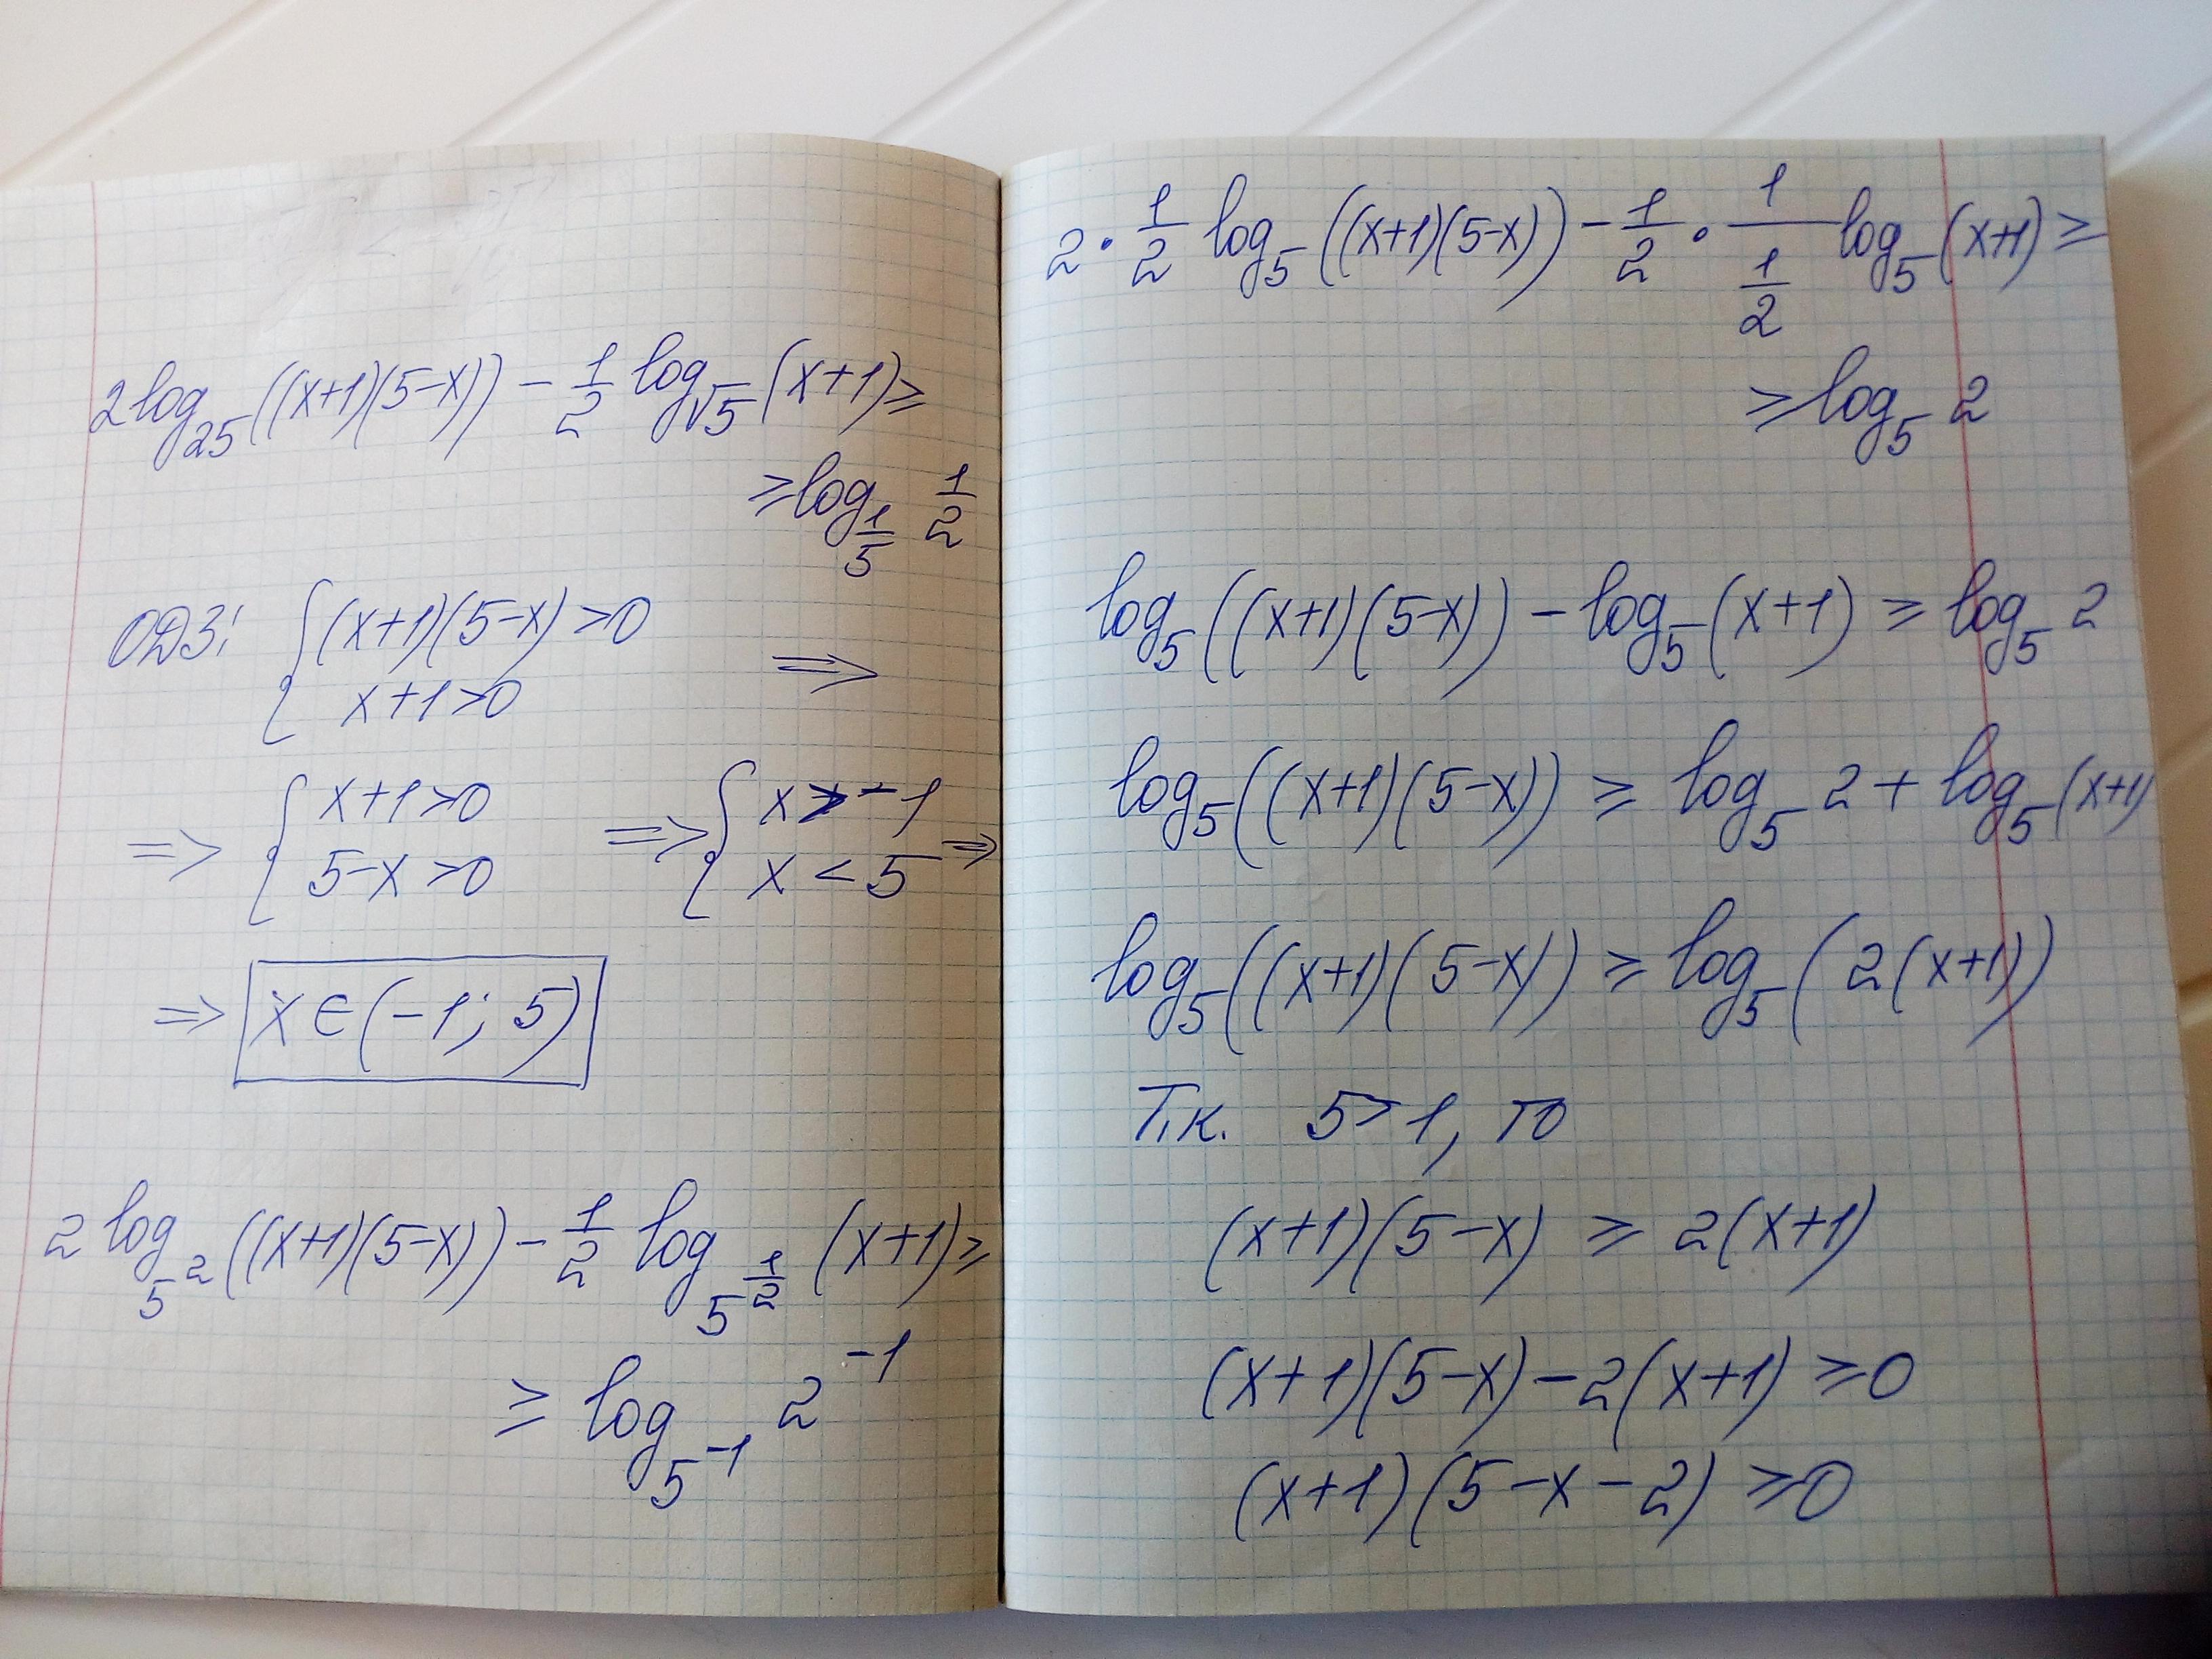 2log₂₅((x+1)(5-x)) - 1/2 log_√5 (x+1) ≥
≥ log_1/5 1/2
ОДЗ: { (x+1)(5-x) > 0
x+1 > 0 ⇒
⇒ { x+1 > 0 ⇒ { x > -1
5-x > 0 x < 5 ⇒
⇒ x ∈ (-1; 5)
2 log_5² ((x+1)(5-x)) - 1/2 log_5^1/2 (x+1) ≥
≥ log_5⁻¹ 2⁻¹
2 · 1/2 log₅ ((x+1)(5-x)) - 1/2 · 1/(1/2) log₅ (x+1) ≥
≥ log₅ 2
log₅ ((x+1)(5-x)) - log₅ (x+1) ≥ log₅ 2
log₅ ((x+1)(5-x)) ≥ log₅ 2 + log₅ (x+1)
log₅ ((x+1)(5-x)) ≥ log₅ (2(x+1))
Т.к. 5 > 1, то
(x+1)(5-x) ≥ 2(x+1)
(x+1)(5-x) - 2(x+1) ≥ 0
(x+1)(5-x-2) ≥ 0